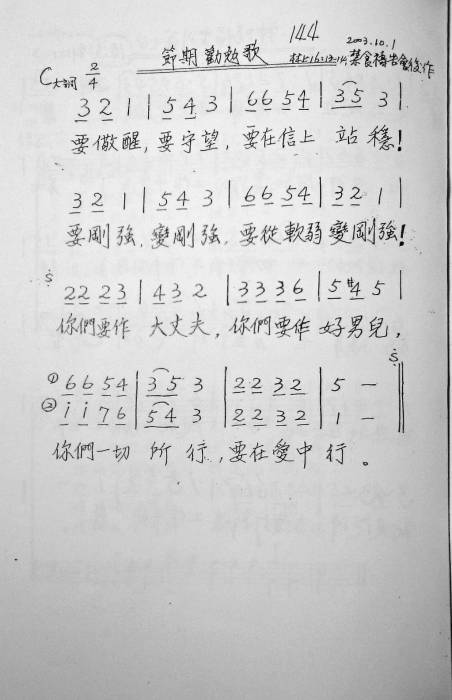 144
節期勸勉歌
2003.10.1
林上16:13-14, 禁食禱告會後作
C大調 2/4
3 2 1 | 5 4 3 | 6 6 5 4 | 3 5 3 |
要儆醒, 要守望, 要在信上 站穩!
3 2 1 | 5 4 3 | 6 6 5 4 | 3 2 1 |
要剛強, 變剛強, 要從軟弱變剛強!
S
2 2 2 3 | 4 3 2 | 3 3 3 6 | 5 #4 5 |
你們要作 大丈夫, 你們要作 好男兒,
S
① 6 6 5 4 | 3 5 3 | 2 2 3 2 | 5 –
② i i 7 6 | 5 4 3 | 2 2 3 2 | 1 –
你們一切 所 行, 要在愛中 行。